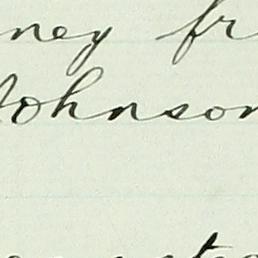 ney fr
Johnson